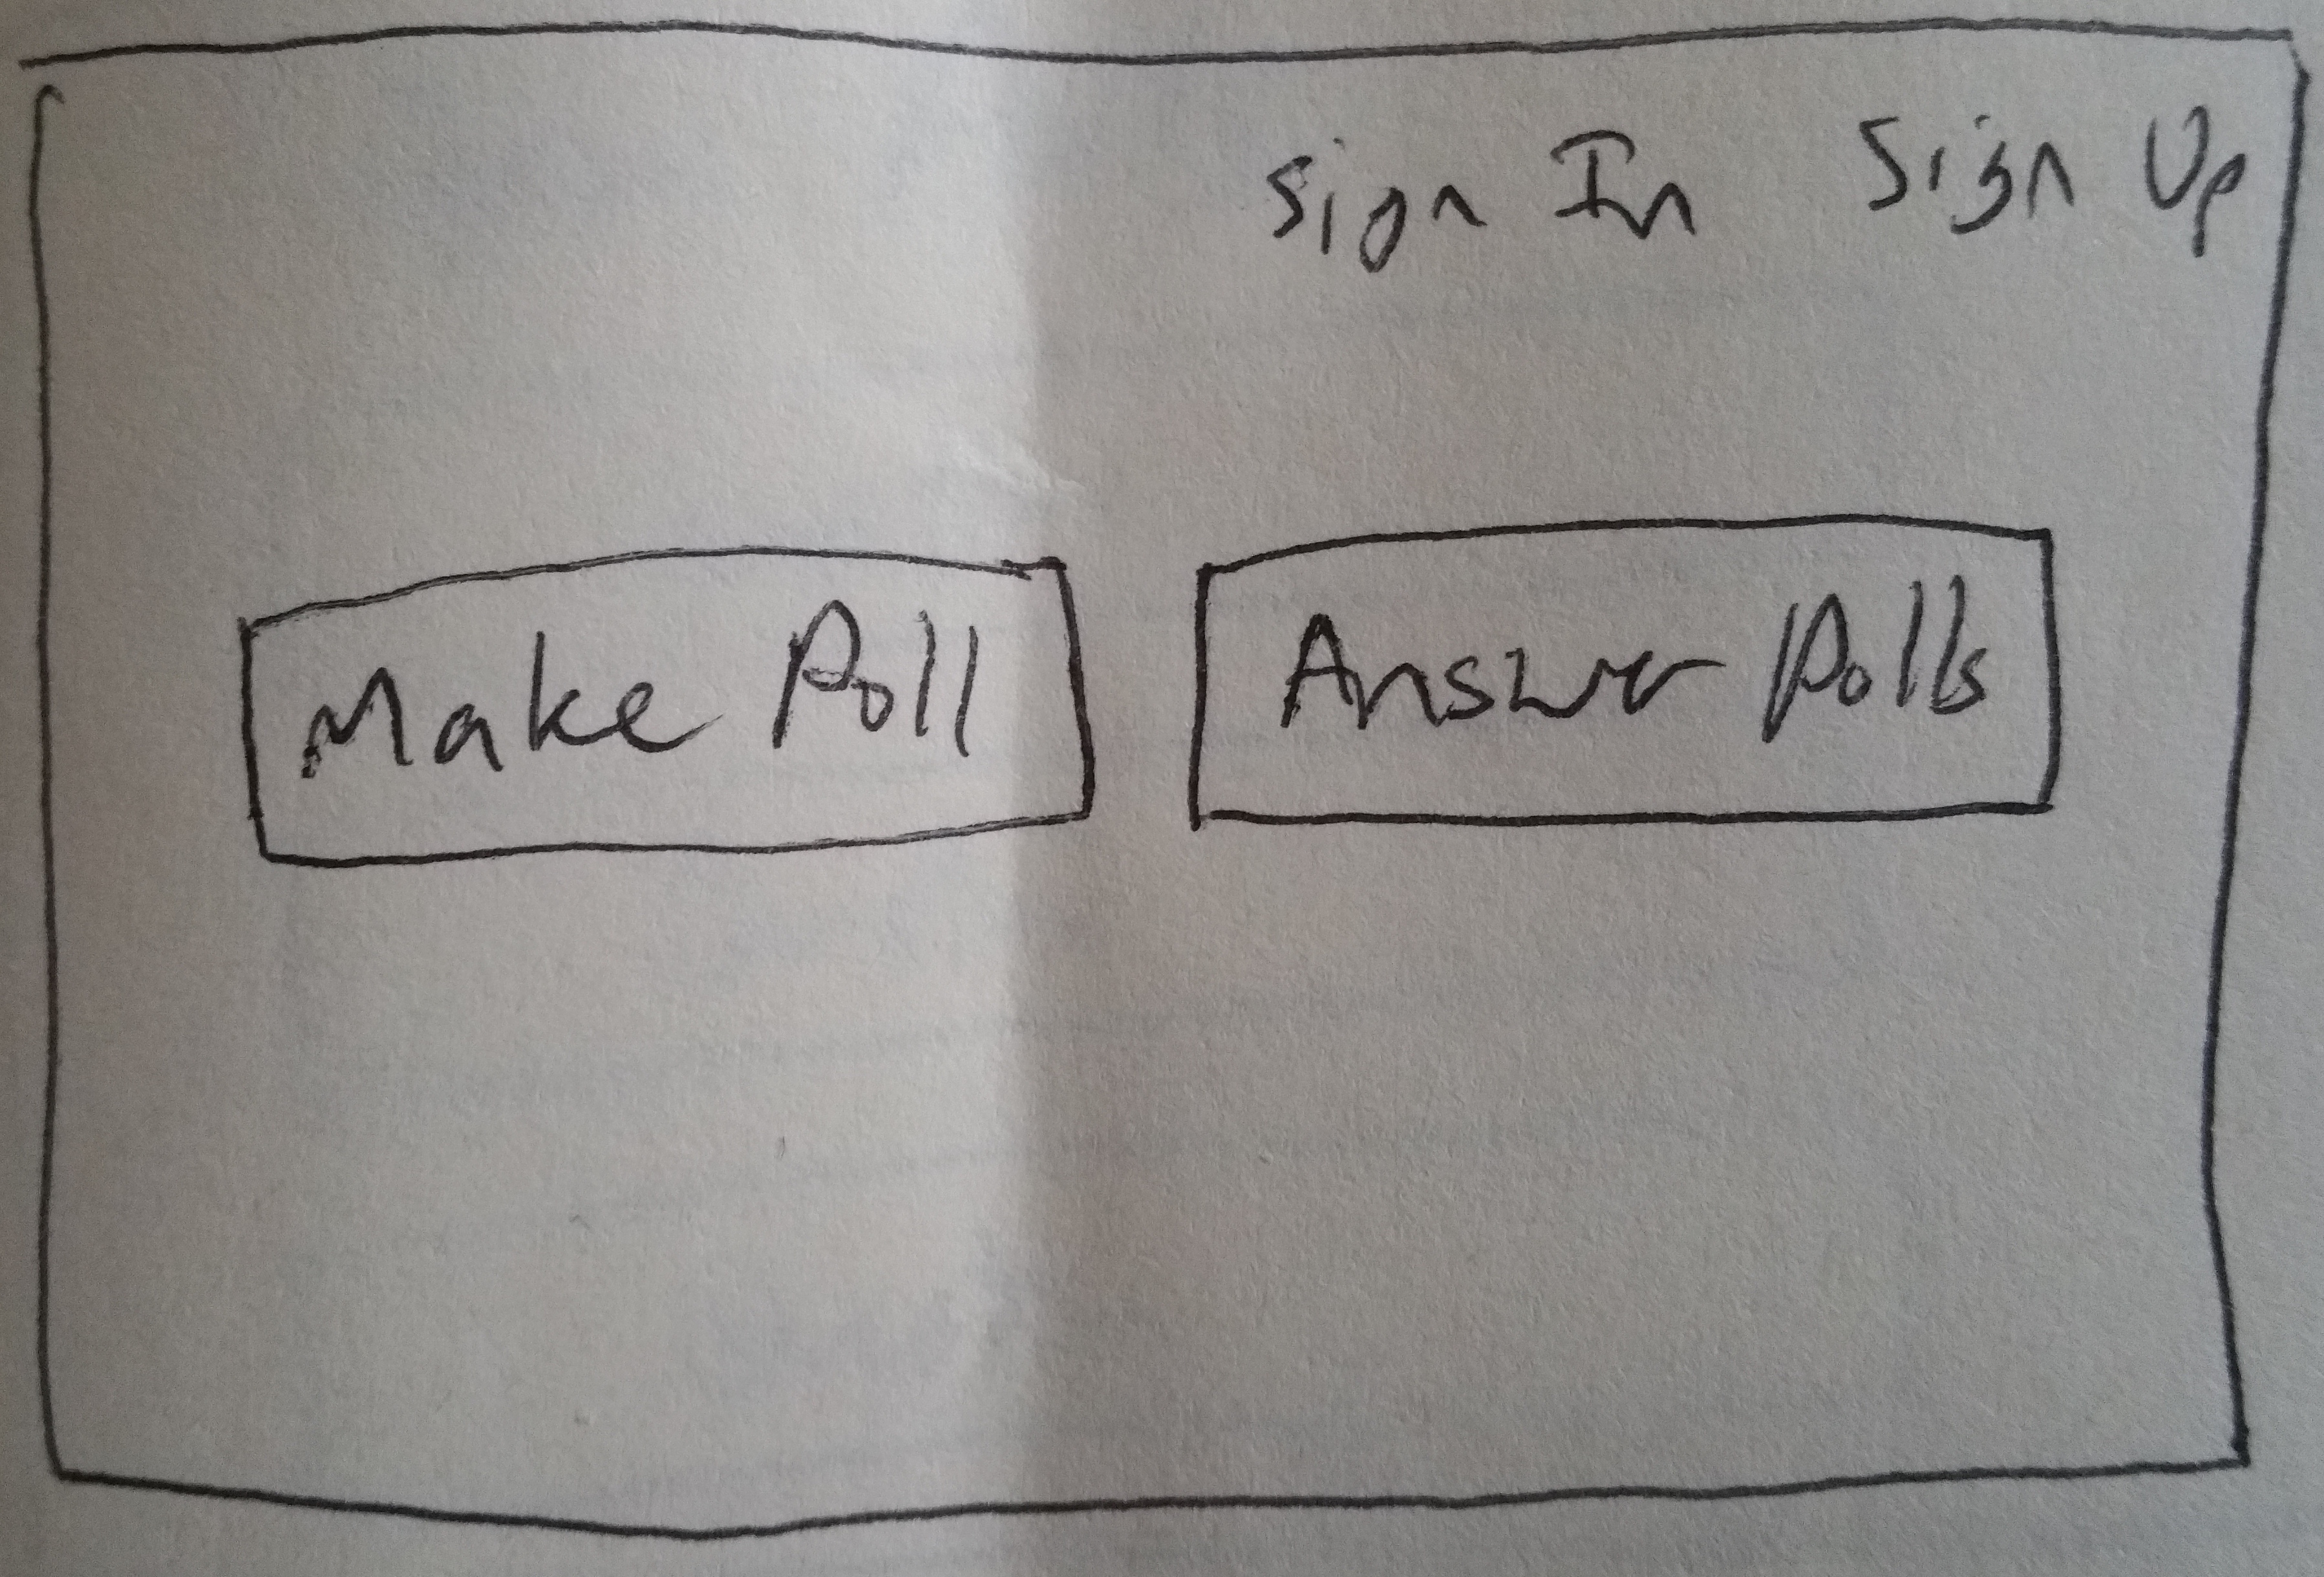 Sign In Sign Up
Make Poll Answer Polls